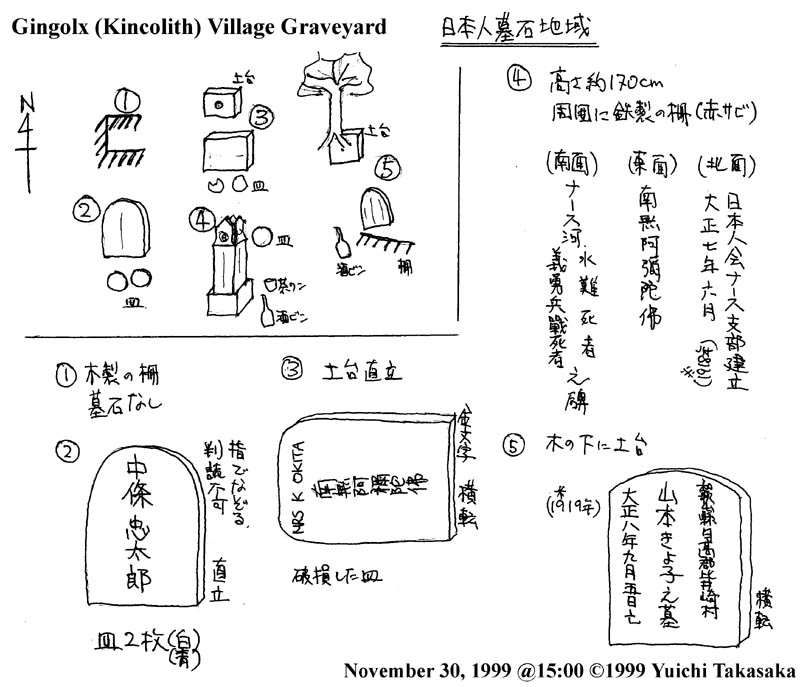 Gingolx (Kincolith) Village Graveyard
日本人墓石地域
N
①
土台
③
皿
②
皿
④
皿
茶ワン
酒ビン
土台
⑤
酒ビン
棚
④ 高さ約170cm
周囲に鉄製の柵(赤サビ)
(北面)
日本人会ナース支部建立
大正七年六月
※(1918年)
(東面)
南無阿彌陀佛
(南面)
ナース河
水難死者
義勇兵戰死者
之碑
① 木製の柵
墓石なし
②
中條忠太郎
指でなぞる
判読不可
直立
皿2枚(白)
(青)
③ 土台直立
MRS K OKITA
南無阿彌陀佛
金文字
横転
破損した皿
⑤ 木の下に土台
※(1919年)
山本きよ子之墓
大正八年九月五日亡
横転
November 30, 1999 @15:00 ©1999 Yuichi Takasaka